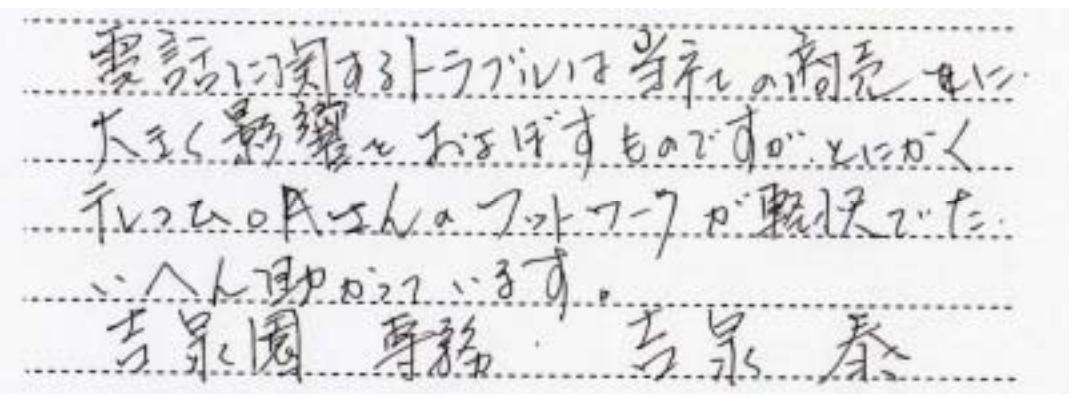 電話に関するトラブルは当社の商売に
大きく影響をおよぼすものですが、とにかく
テレコムO氏さんのフットワークが軽快でた
いへん助かっています。
吉泉園 専務 吉泉 泰